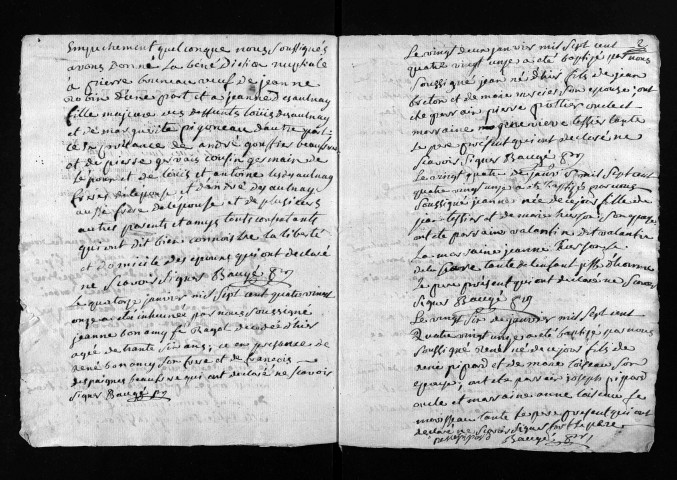 Empechement quelconque nous soussignés
avons donné la benediction nuptiale
à pierre bruneau veuf de jeanne
robin d'une part et a jeanne desaulnay
fille majeure des deffunts louis desaulnay
et de marguerite pigoneau d'autre part
ce en présence de andré gouffier beaufrere
et de pierre gervais cousin germain de
l'epoux et de louis et antoine desaulnay
freres de l'epouse et d'andré desaulnay
aussi frere de l'epouse et de plusieurs
autres parents et amys tous consentants
qui ont dit bien connoistre la liberté
et domicile des epoux qui ont declaré
ne scavoir signer Baugé
Le quatorze janvier mil sept cent quatre vingt
onze a été inhumée par nous soussigné
jeanne bonamy fe ragot decedée d'hier
agée de trante six ans, ce en presence de
rené bonamy son frere et de francois
beaufrere qui ont declaré ne scavoir
signer Baugé
2
Le vingt deux janvier mil sept cent
quatre vingt onze a été baptisé par nous
soussigné jean né d'hier fils de jean
breton et de marie son epouse; ont
été parrain pierre oncle et
marraine genevieve tessier tante
le pere présent qui ont declaré ne
scavoir signer Baugé
Le vingt quatre de janvier mil sept cent
quatre vingt onze a été baptisée par nous
soussigné jeanne née de ce jour fille de
jean tessier et de marie son epouse
ont été parrain valentin
La marraine jeanne
tante de l'enfant
le pere présent qui ont declaré ne scavoir
signer Baugé
Le vingt six de janvier mil sept cent
quatre vingt onze a été baptisé par nous
soussigné rené né de ce jour fils de
rené pipard et de marie loiseau son
epouse, ont été parrain joseph pipard
oncle et marraine anne loiseau fe
tante le pere present qui ont
declaré ne scavoir signer fort le pere
rene pipard Baugé